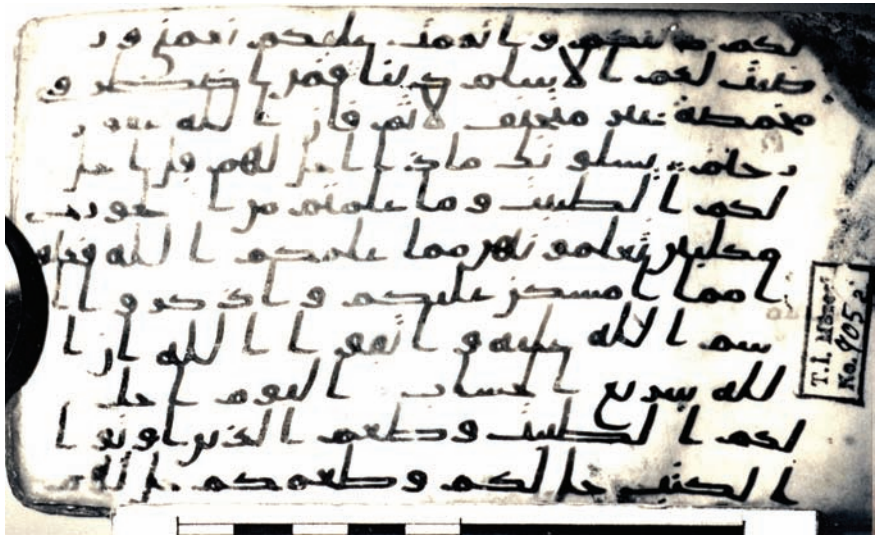 لكم دينكم واتممت عليكم نعمتي ور
ضيت لكم الاسلم دينا فمن اضطر في
مخمصة غير متجنف لاثم فان الله غفور
رحيم يسلونك ماذا احل لهم قل احل
لكم الطيبت وما علمتم من الجوارح
مكلبين تعلمونهن مما علمكم الله فكلو
ا مما امسكن عليكم واذكروا ا
سم الله عليه واتقوا الله ان ا
لله سريع الحساب اليوم احل
لكم الطيبت وطعم الذين اوتوا
الكتب حل لكم وطعمكم حل لهم
T.I. Müzesi